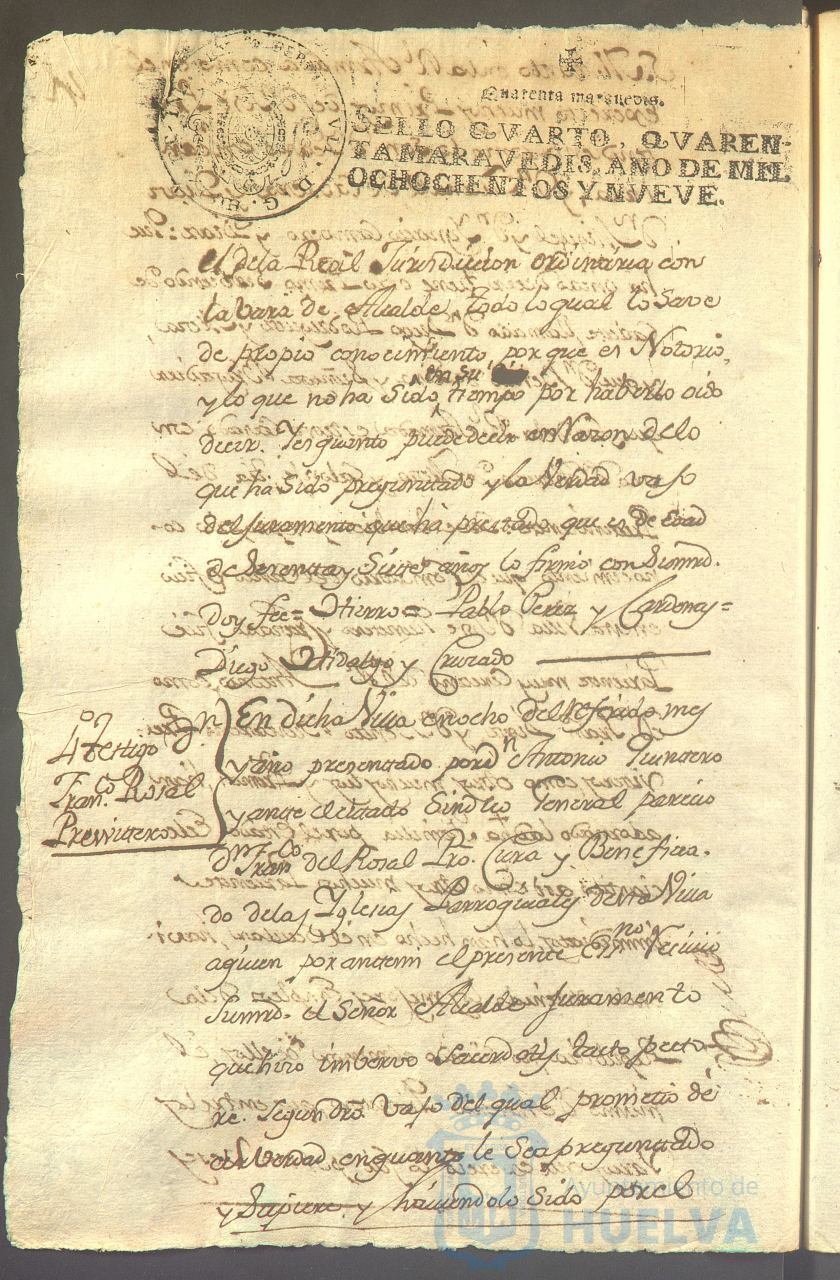 Quarenta maravedis.
SELLO QVARTO, QVAREN-
TA MARAVEDIS, AÑO DE MIL
OCHOCIENTOS Y NVEVE.
el dela Real Jurisdiccion ordinaria con
la bara de Alcalde, todo lo qual lo save
de propio conocimiento, por que es Notorio,
en su
y lo que no ha sido tiempo por haberlo oido
decir. Y es quanto puede decir en Razon delo
que ha sido preguntado y la Verdad vajo
del juramento que ha prestado que es de edad
de setenta y Siete años lo firmó con Su md.
doy fee= Hierro= Pablo Perez y Cardenas=
Diego Hidalgo y Cruzado
4º testigo Dn
Franco Rosal
Previtero
En dicha Villa en ocho del referido mes
y año presentado por Dn Antonio Quintero
y ante el citado Sindico General parecio
Dn Franco del Rosal Pro. Cura y Beneficia-
do delas Yglesias Parroquiales desta Villa
aquien por ante mi el presente Esno Recivio
Su md. el Señor Alcalde juramento
que hizo imbervo Sacerdotis tacto pecto-
re. Segun dro. vajo del qual prometio de-
cir verdad en quanto le Sea preguntado
y Supiere y haviendolo Sido por el
Ayuntamiento de
HUELVA